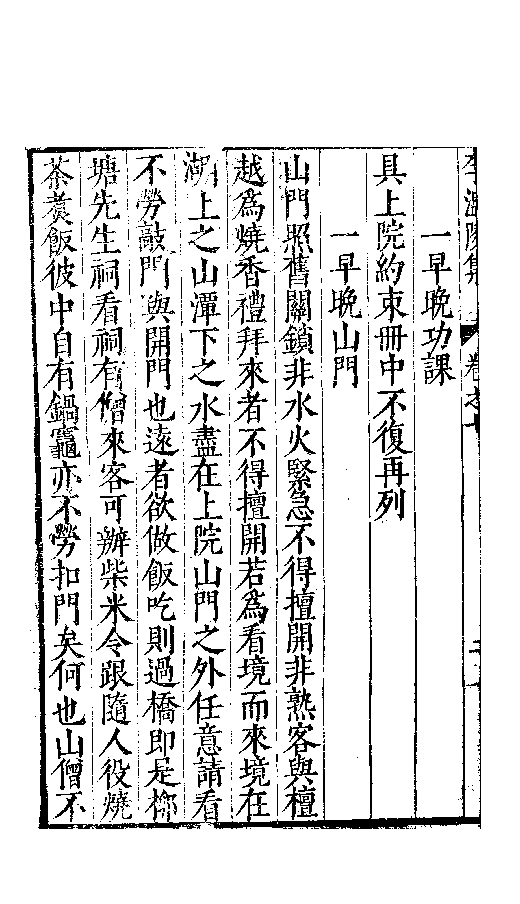 李溫陵集 卷之十
一早晚功課
具上院約束冊中不復再列
一早晚山門
山門照舊關鎖非水火緊急不得擅開非熟客與檀
越為燒香禮拜來者不得擅開若為看境而來境在
湖上之山潭下之水盡在上院山門之外任意請看
不勞敲門與開門也遠者欲做飯吃則過橋即是柳
塘先生祠看祠有僧來客可辦柴米令跟隨人役燒
茶煑飯彼中自有鍋竈亦不勞扣門矣何也山僧不